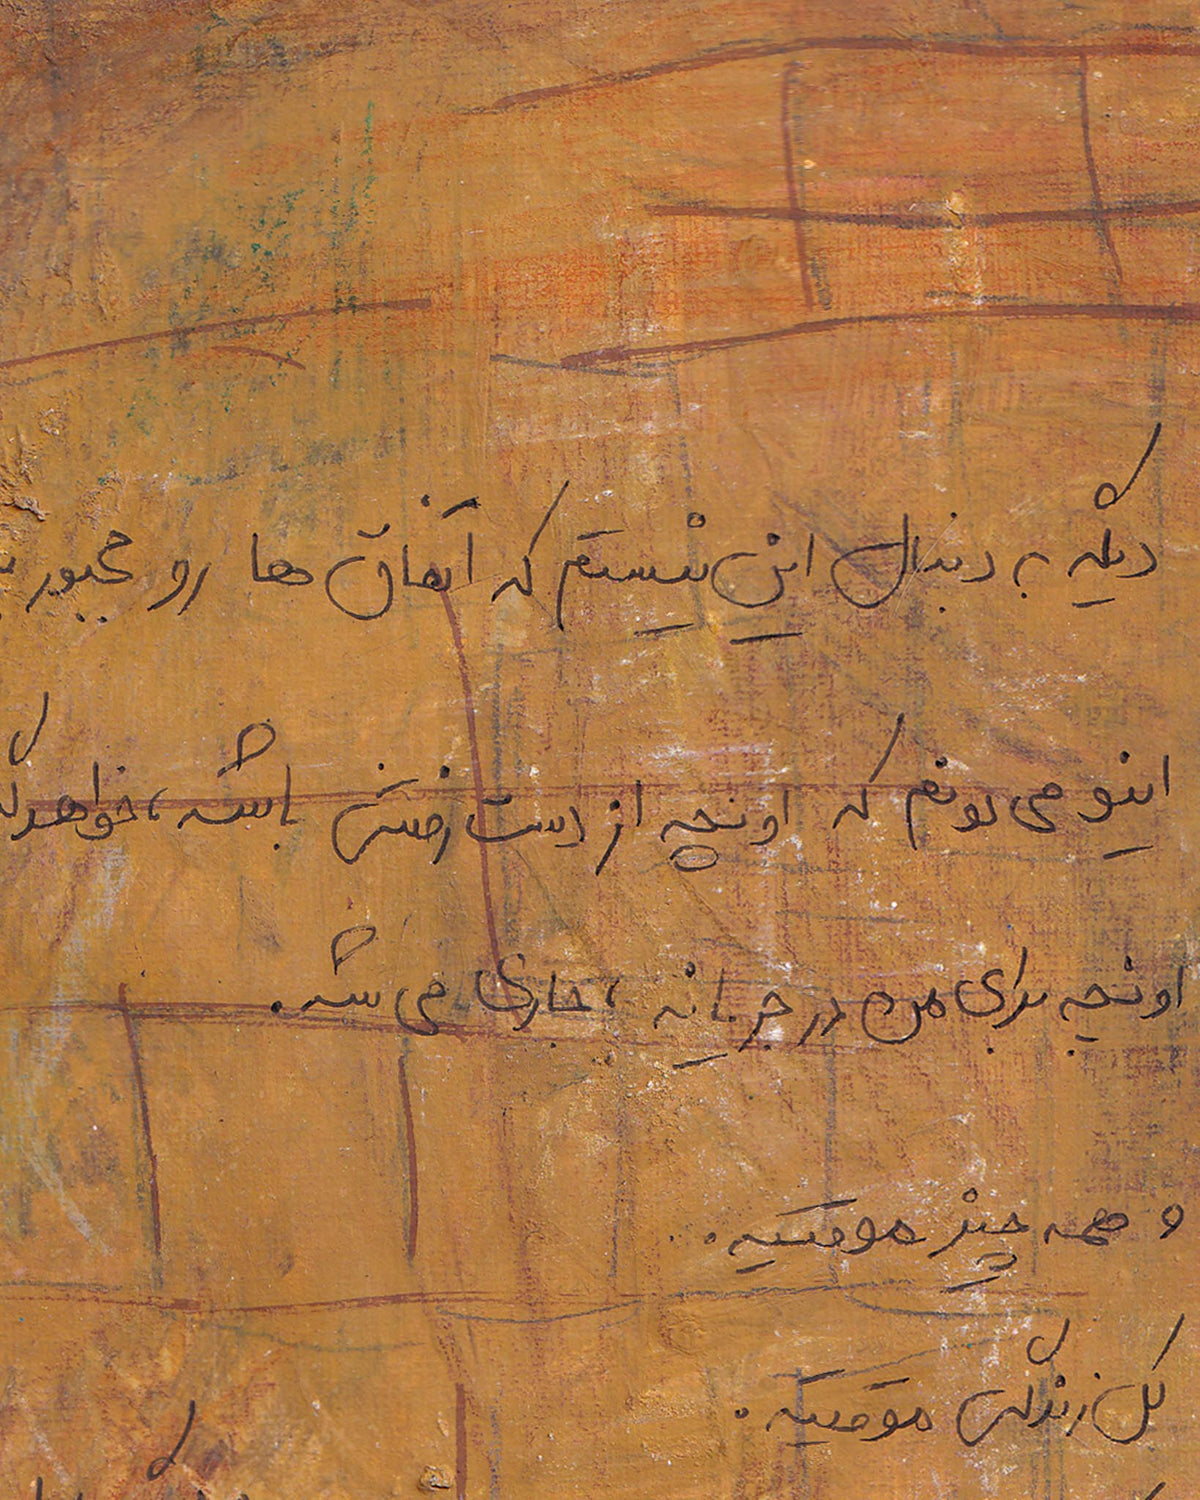 دیگه به دنبال این نیستم که اتفاق ها رو مجبور
اینو می دونم که اونچه از دست رفتنی باشه، خواهد
اونچه برای من در جریانه، جاری می شه.
و همه چیز موقتیه.
کل زندگی موقتیه.